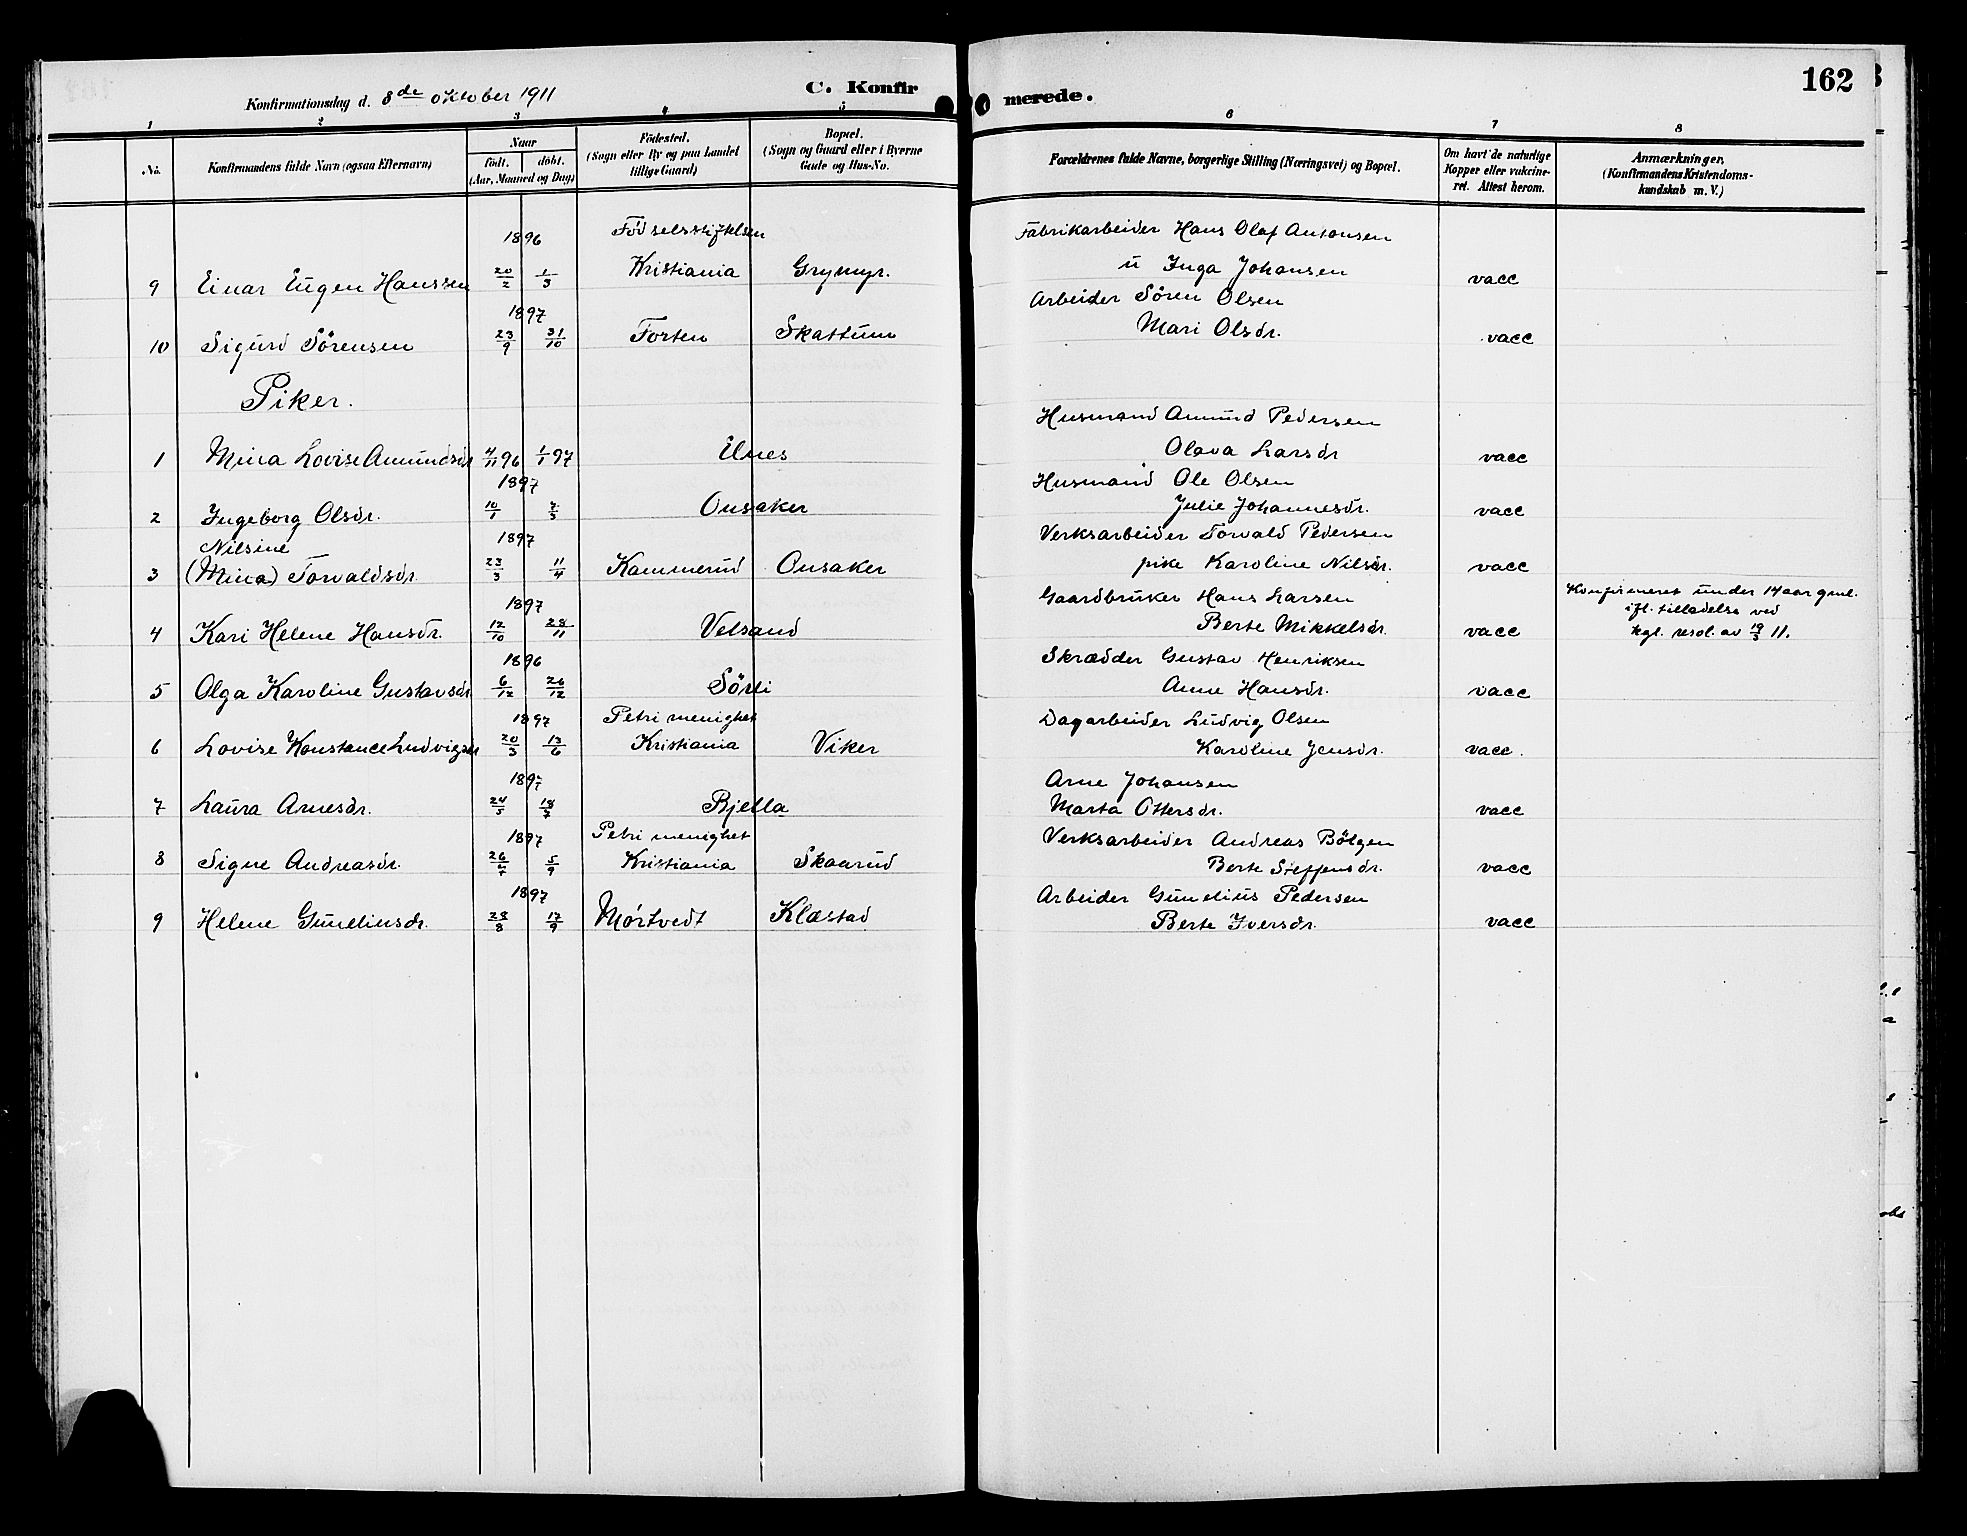 162
Konfirmationsdag d. 8de oktober 1911
C. Konfirmerede.
1 2 3 4 5 6 7 8
No.
Konfirmandens fulde Navn (ogsaa Efternavn)
Naar
födt. döbt.
(Aar, Maaned og Dag)
Födested.
(Sogn eller By og paa Landet
tillige Gaard)
Bopæl.
(Sogn og Gaard eller i Byerne
Gade og Hus-No.
Forældrenes fulde Navne, borgerlige Stilling (Næringsvei) og Bopæl.
Om havt de naturlige
Kopper eller vakcine-
ret. Attest herom.
Anmærkninger.
(Konfirmandens Kristendoms-
kundskab m. V.)
1896 Födselsstiftelsen Fabrikarbeider Hans Olaf Antonsen
9 Einar Eugen Hanssen 20/2 1/3 Kristiania Grymyr. u Inga Johansen vacc
1897 Arbeider Sören Olsen
10 Sigurd Sörensen 23/9 31/10 Forten Skattum Mari Olsdr. vacc
Piker.
Husmand Amund Pedersen
1 Mina Lovise Amundsdr 4/11 96 1/1 97 Elnes Olava Larsdr vacc
1897 Husmand Ole Olsen
2 Ingeborg Olsdr. 10/1 7/3 Onsaker Julie Johannesdr. vacc
Nilsine 1897 Verksarbeider Torvald Pedersen
3 (Mina) Torvaldsdr. 23/3 11/4 Kammerud Onsaker pike Karoline Nilsdr. vacc
1897 Gaardbruker Hans Larsen Konfirmeret under 14 aar gml.
ifl. tilladelse ved
4 Kari Helene Hansdr. 12/10 28/11 Velsand Berte Mikkelsdr. vacc kgl. resol. av 19/3 11.
1896 Skrædder Gustav Henriksen
5 Olga Karoline Gustavsdr 6/12 26/12 Sörli Anne Hansdr. vacc
1897 Petri menighet Dagarbeider Ludvig Olsen
6 Lovise Konstance Ludvigsdr 20/3 13/6 Kristiania Viker Karoline Jensdr. vacc.
1897 Arne Johansen
7 Laura Arnesdr. 24/5 18/7 Bjella Marta Ottersdr. vacc
1897 Petri menighet Verksarbeider Andreas Bölgen
8 Signe Andreasdr. 26/7 5/9 Kristiania Skaarud Berte Steffensdr. vacc
1897 Arbeider Gunelius Pedersen
9 Helene Guneliusdr. 28/8 17/9 Mörtvedt Klæstad Berte Iversdr. vacc